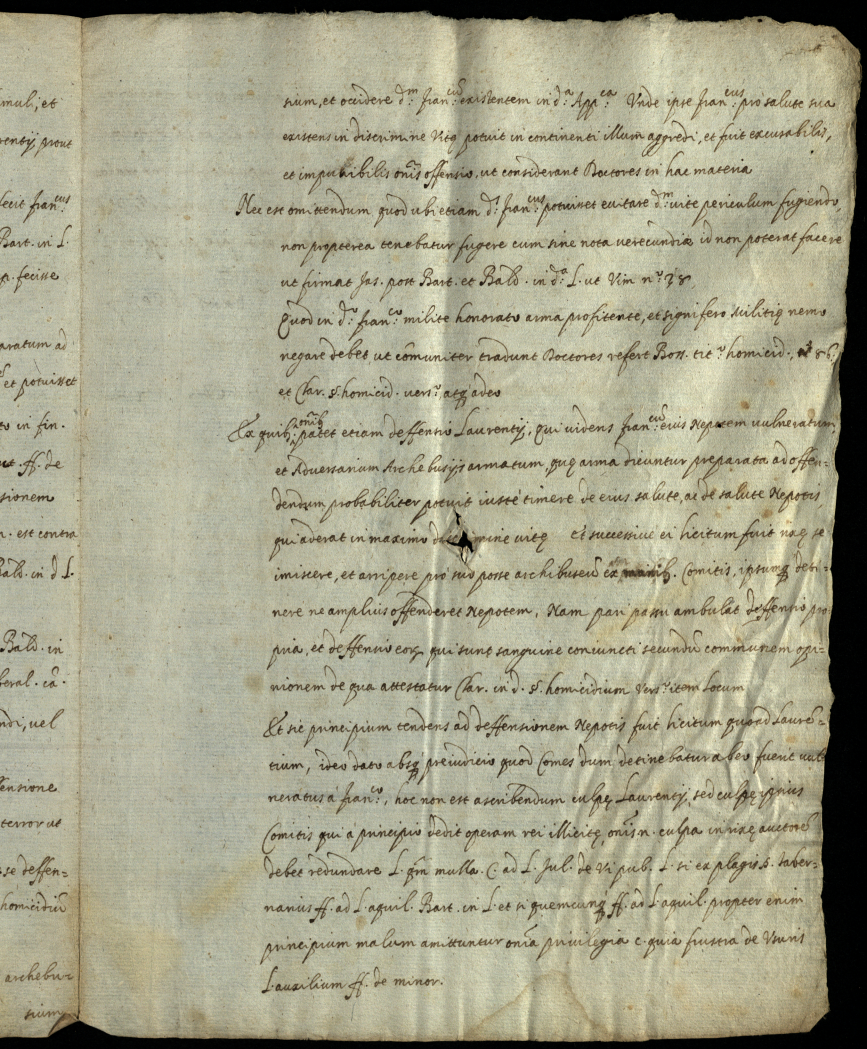 muli; et
rentij prout
fecit fran.cus
Bart. in L.
p. fecisse
aratum ad
et potuisset
to in fin.
ff. de
sionem
n. est contra
Bald. in d L.
Bald. in
beral. ca.
ndi, vel
ensione
terror ut
se deffen=
homicidiū
archebu=
sium
sium, et occidere d.m fran.cū existentem in d.a App.ca Vnde ipse fran.cus pro salute sua
existens in discrimine Vitę potuit in continenti illum aggredi, et fuit excusabilis,
et impunibilis oñis offensio, ut considerant Doctores in hac materia
Nec est omittendum quod ubi etiam d.s fran.cus potuisset evitare d.m vite periculum fugiendo,
non propterea tenebatur fugere cum sine nota verecundiæ id non poterat facere
ut firmat Jas. post Bart. et Bald. in d.a L. ut Vim n.o 38
Quod in d.o fran.co milite honorato arma profitente, et signifero Militię nemo
negare debet ut cōmuniter tradunt Doctores refert Boss. tit.o homicid. 86.
et Clar. §. homicid. vers.o atq adeo
Ex quib. omīb. patet etiam deffensio Laurentij, qui videns fran.cū eius Nepotem vulneratum,
et Adversarium Archebusijs armatum, quę arma dicuntur preparata ad offen=
dendum probabiliter potuit iuste timere de eius salute, ac de salute Nepotis,
qui aderat in maximo discrimine vitę et successive ei licitum fuit rixę se
imiscere, et arripere pro suo posse archibuseū Comitis, ipsumq deti=
nere ne amplius offenderet Nepotem, Nam pari passu ambulat deffensio pro=
pria, et deffensio eorū qui sunt sanguine coniuncti secundū communem opi=
nionem de qua attestatur Clar. in d. §. homicidium Vers.o item Locum
Et sic principium tendens ad deffensionem Nepotis fuit licitum quoad Laurē=
tium, ideo dato absq preiudicio quod Comes dum detinebatur ab eo fuerit vul
neratus a fran.co, hoc non est ascribendum culpę Laurentij, sed culpę ipsius
Comitis qui a principio dedit operam rei illicitę, oñis n. culpa in rixę auctorē
debet redundare L. qm̄ multa. C. ad L. Jul. de Vi pub. L. si ex plagis §. taber=
narius ff. ad L. aquil. Bart. in L. et si quemcunq ff. ad L. aquil. propter enim
principium malum amittuntur oñia privilegia c. quia frustra de Vsuris
L. auxilium ff. de minor.